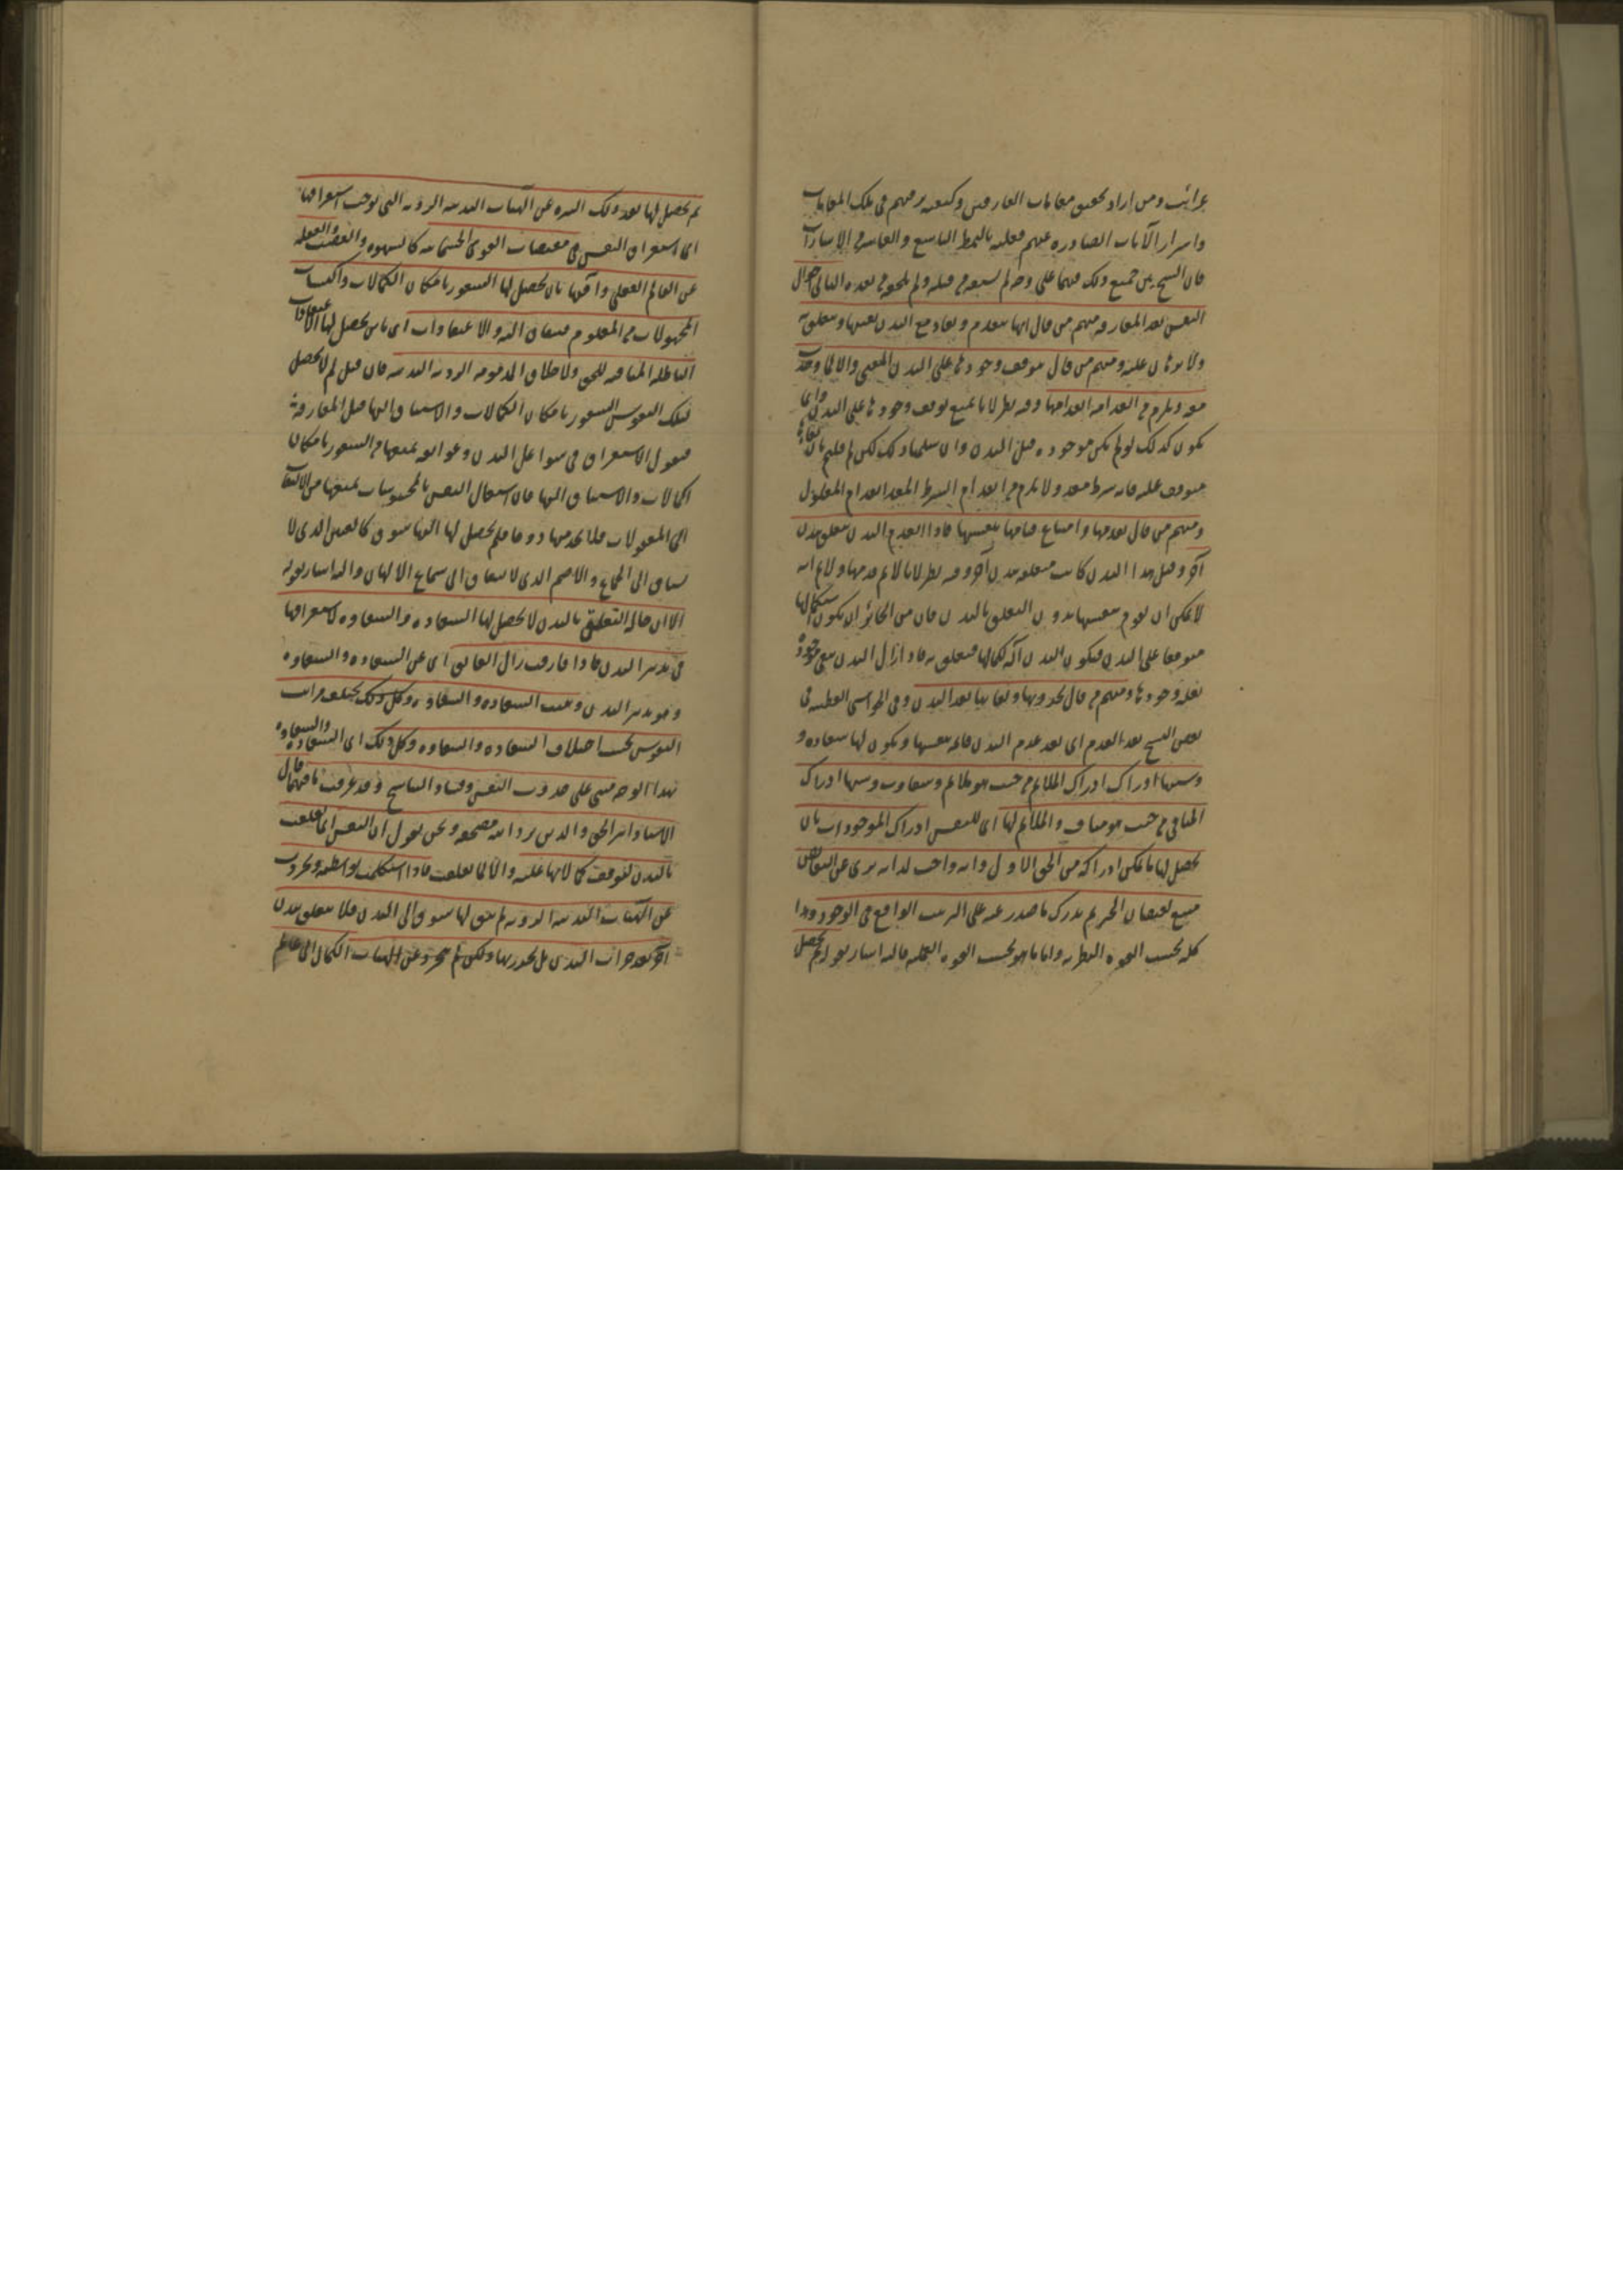 غرائب ومن اراد تحقيق مقامات العارفين وكيفية ترقيهم في تلك المقامات
واسرار الآيات الصادرة عنهم فعليه بالنمط التاسع والعاشر من الاشارات
فان الشيخ بين جميع ذلك فيهما على وجه لم يسبقه من قبله ولم يلحقه من بعده الثاني احوال
النفس بعد المفارقة منهم من قال انها تنعدم وتعاد مع البدن بعينها ومتعلق به
ولا برهان عليه ومنهم من قال يتوقف وجودها على البدن المعين والا لما وجدت
معه ويلزم من انعدامه انعدامها وفيه نظر لانا نمنع توقف وجودها على البدن وانما
يكون كذلك لو لم تكن موجودة قبل البدن وان سلمنا ذلك لكن لم قلتم بان بقاءها
متوقف عليه فانه شرط معد ولا يلزم من انعدام الشرط المعد انعدام المعلول
ومنهم من قال بقدمها وامتناع قيامها بنفسها فاذا انعدم البدن تتعلق ببدن
آخر وقبل هذا البدن كانت متعلقة ببدن آخر وفيه نظر لانا لا نم قدمها ولا نم انه
لا يمكن ان تقوم بنفسها بدون التعلق بالبدن فان من الجائز ان يكون استكمالها
متوقفا على البدن فيكون البدن آلة لكمالها فتتعلق به فاذا زال البدن تبقى موجودة
بعلة وجودها ومنهم من قال بحدوثها وبقائها بعد البدن وفي الحواشي القطبية في
بعض النسخ بعد العدم اى بعد عدم البدن قائمة بنفسها ويكون لها سعادة و
وسببها ادراك ادراك الملائم من حيث هو ملائم وشقاوة وسببها ادراك
المنافي من حيث هو مناف والملائم لها اى للنفس ادراك الموجودات بان
يحصل لها ما يمكن ادراكه من الحق الاول وانه واجب لذاته برى عن النقائص
منبع لفيضان الخير ثم يدرك ما صدر عنه على الترتيب الواقع في الوجود وهذا
كله بحسب القوة النظرية واما ما هو بحسب القوة العملية فاليه اشار بقوله ثم يحصل
ثم يحصل لها بعد ذلك التنزه عن الهيئات البدنية الردية التي توجب استغراقها
اى استغراق النفس في مقتضيات القوى الجسمانية كالشهوة والغضب والغفلة
عن العالم العقلي وآفتها بان يحصل لها الشعور بامكان الكمالات واكتساب
المجهولات من المعلوم فيعاق اليه والاعتقادات اى بان يحصل لها الاعتقادات
الباطلة المنافية للحق والاخلاق المذمومة الردية البدنية فان قيل لم لا يحصل
لتلك النفوس الشعور بامكان الكمالات والاشتياق اليها قبل المفارقة
فنقول الاستغراق في شواغل البدن وعوائقه يمنعها من الشعور بامكان
الكمالات والاشتياق اليها فان اشتغال النفس بالمحسوسات يمنعها من الالتفات
الى المعقولات فلا تجد منها ذوقا فلم يحصل لها اليها شوق كالعنين الذى لا
يشتاق الى الجماع والاصم الذى لا يشتاق الى سماع الالحان واليه اشار بقوله
الا ان حالة التعلق بالبدن لا يحصل لها السعادة والشقاوة لاستغراقها
في تدبير البدن فاذا فارقت زال العائق اى عن السعادة والشقاوة
وهو تدبير البدن وثبتت السعادة والشقاوة وكل ذلك يختلف مراتب
النفوس بحسب اختلاف السعادة والشقاوة وكل ذلك اى السعادة والشقاوة
بهذا الوجه مبنى على حدوث النفس وفساد التناسخ وقد عرفت ما فيهما قال
الاستاذ اثير الحق والدين برد الله مضجعه ونحن نقول ان النفس انما تعلقت
بالبدن لتوقف كمالاتها عليه والا لما تعلقت فاذا استكملت بواسطته وتجردت
عن الهيئات البدنية الردية لم يبق لها شوق الى البدن فلا تتعلق ببدن
آخر بعد خراب البدن بل بحدوثها ولكن لم تتجرد عن الهيئات الكمال الى عالم